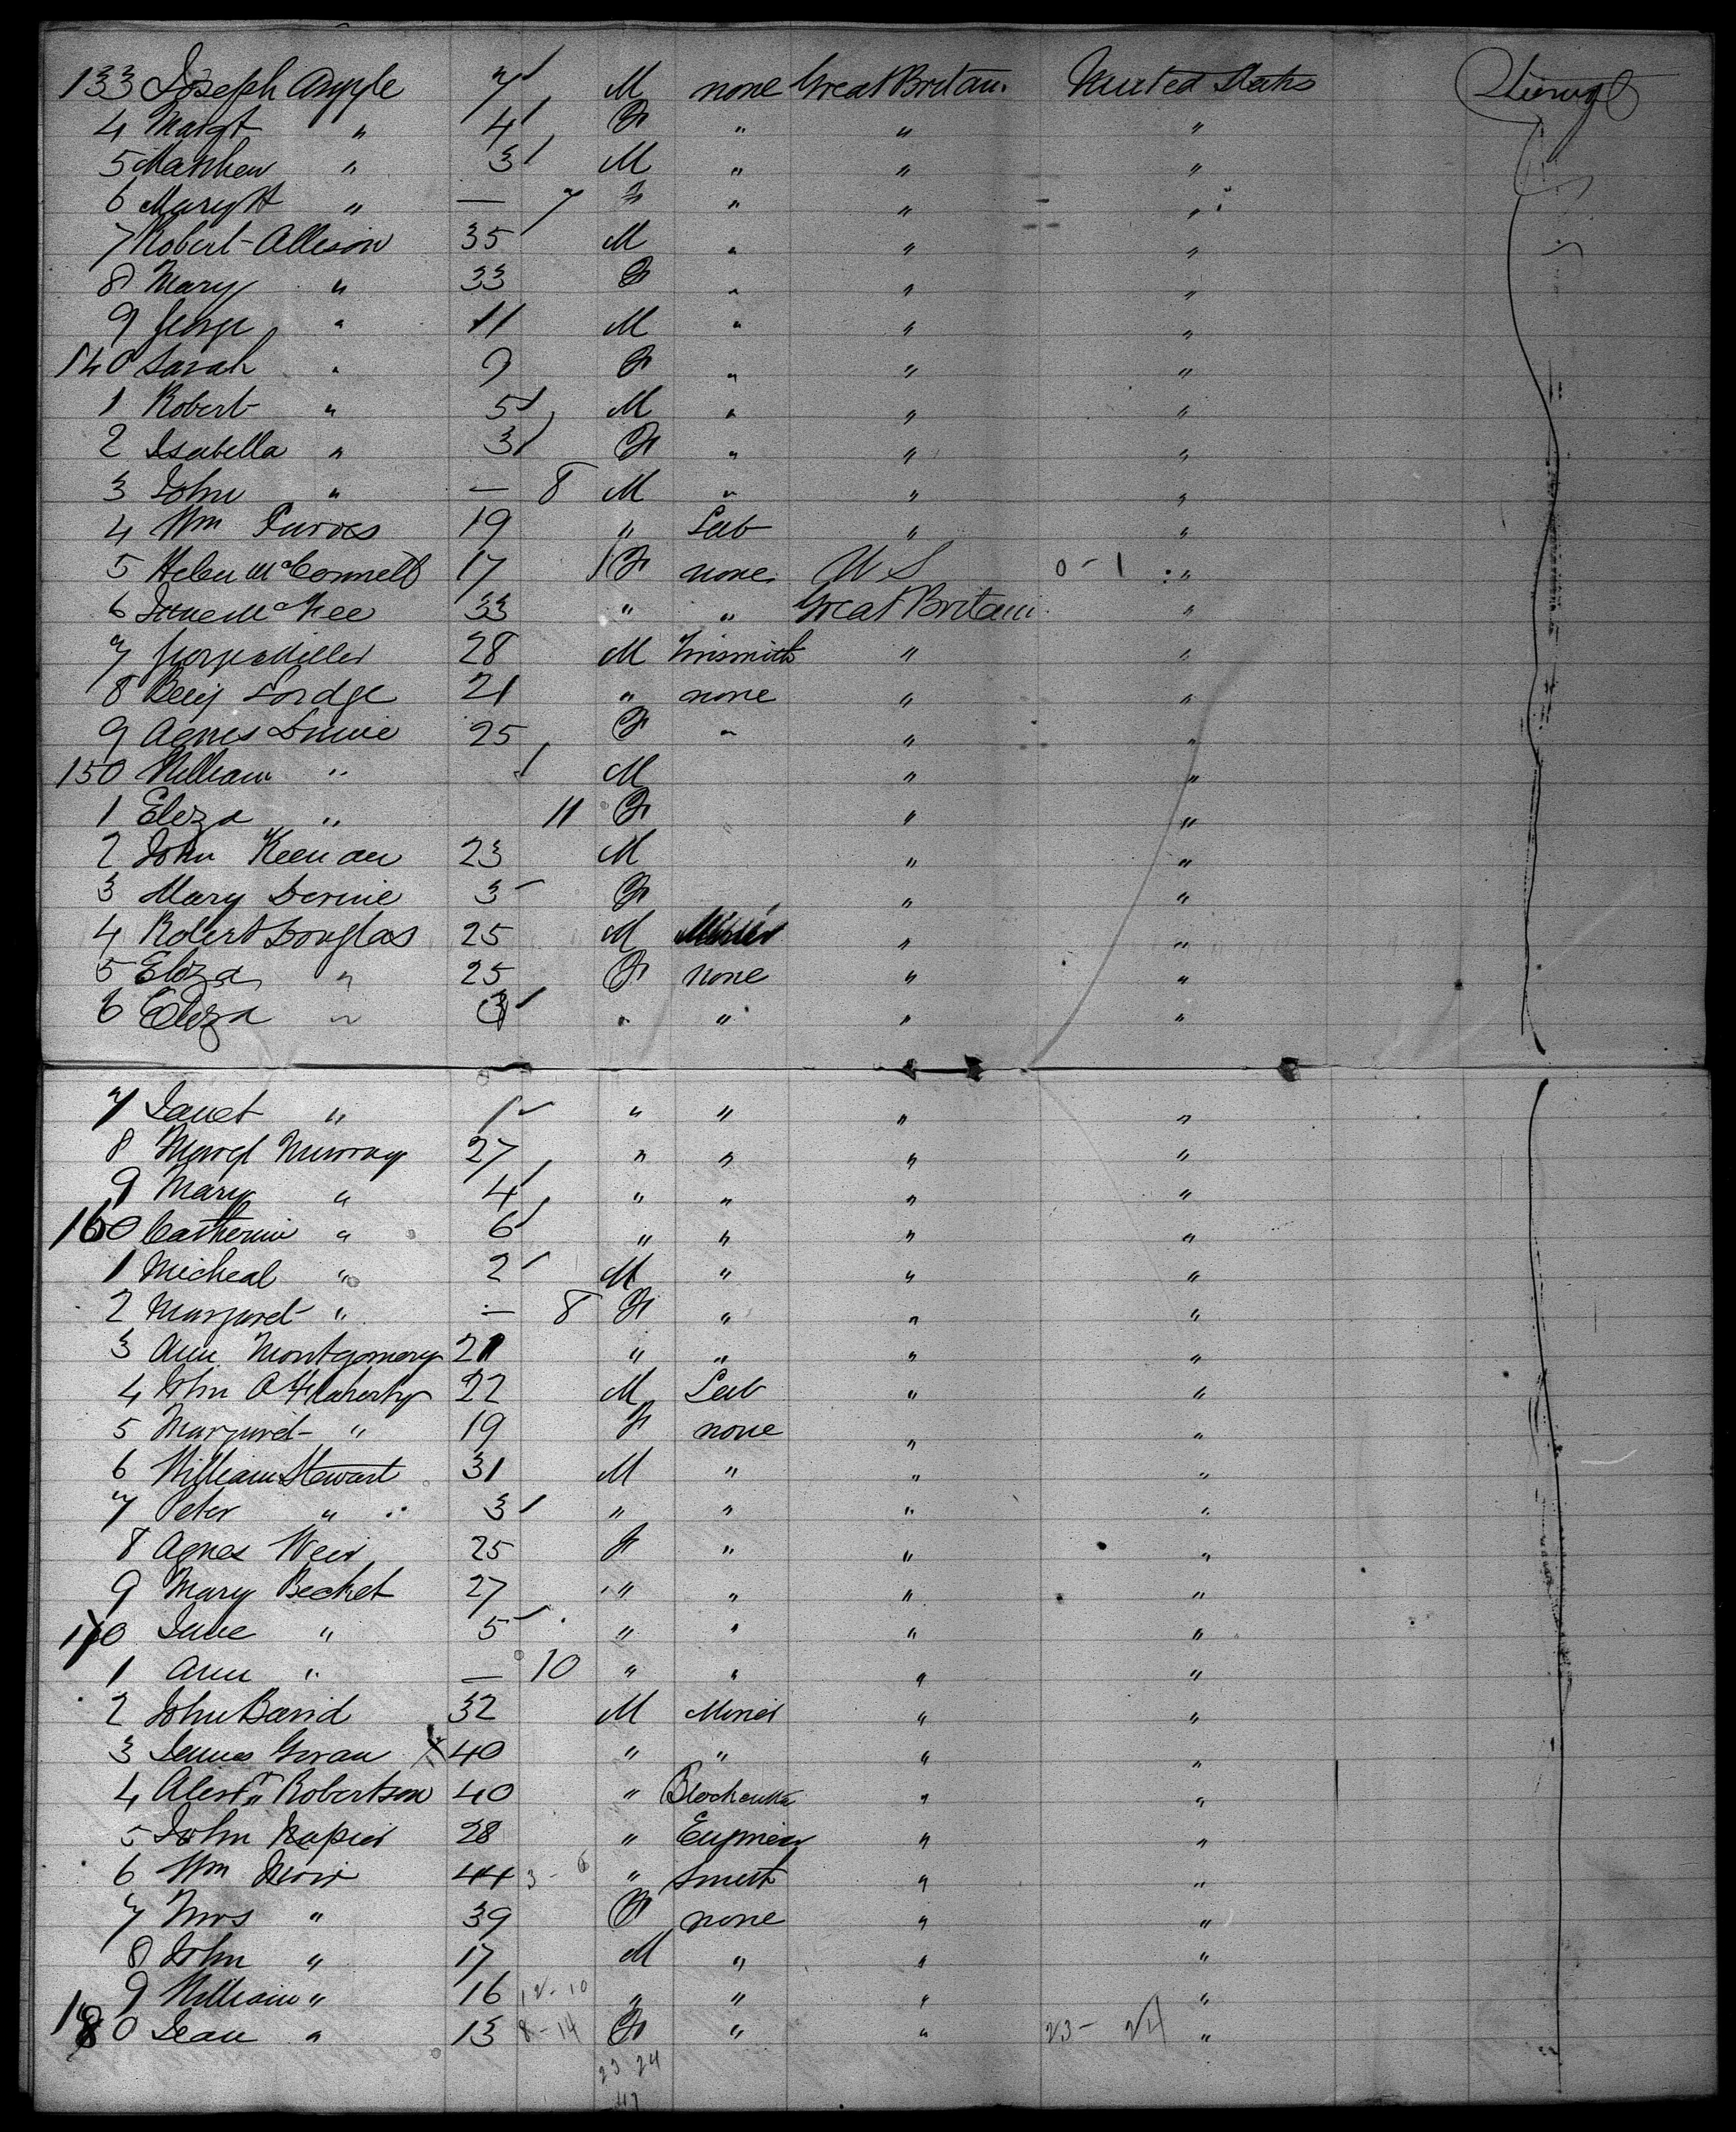 133 Joseph Argyle 7 M none Great Britain United States
4 Margt " 4 F " " "
5 Matthew " 3 M " " "
6 Mary A " — 7 F " " "
7 Robert Allison 35 M " " "
8 Mary " 33 F " " "
9 George " 11 M " " "
140 Sarah " 9 F " " "
1 Robert " 5 M " " "
2 Isabella " 3 F " " "
3 John " — 8 M " " "
4 Wm Purves 19 " Lab " "
5 Helen McConnell 17 F none U S 0 - 1 "
6 Jane McKee 33 " " Great Britain "
7 George Miller 28 M Tinsmith " "
8 Benj Lordge 21 " none " "
9 Agnes 25 F " " "
150 William " M " "
1 Eliza " 11 F " "
2 John Keenan 23 M " "
3 Mary 3 F " "
4 Robert Douglas 25 M Miner " "
5 Eliza " 25 F none " "
6 Eliza " 3 " " " "
7 Janet " 1 " " " "
8 Margt Murray 27 " " " "
9 Mary " 4 " " " "
160 Catherine " 6 " " " "
1 Micheal " 2 M " " "
2 Margaret " — 8 F " " "
3 Ann Montgomery 21 " " " "
4 John O Flaherty 22 M Lab " "
5 Margaret " 19 F none " "
6 William Stewart 31 M " " "
7 Peter " 3 " " " "
8 Agnes Weir 25 F " " "
9 Mary Becket 27 " " " "
170 Jane " 5 " " " "
1 Ann " — 10 " " " "
2 John Baird 32 M Miner " "
3 James Govan X 40 " " " "
4 Alexr Robertson 40 " Blockcutter " "
5 John Napier 28 " Engineer " "
6 Wm Muir 44 3 - 6 " Smith " "
7 Mrs " 39 F none " "
8 John " 17 M " " "
9 William " 16 12 - 10 " " " "
180 Jean " 13 8 - 14 F " " 23 - 24 "
23 24
47